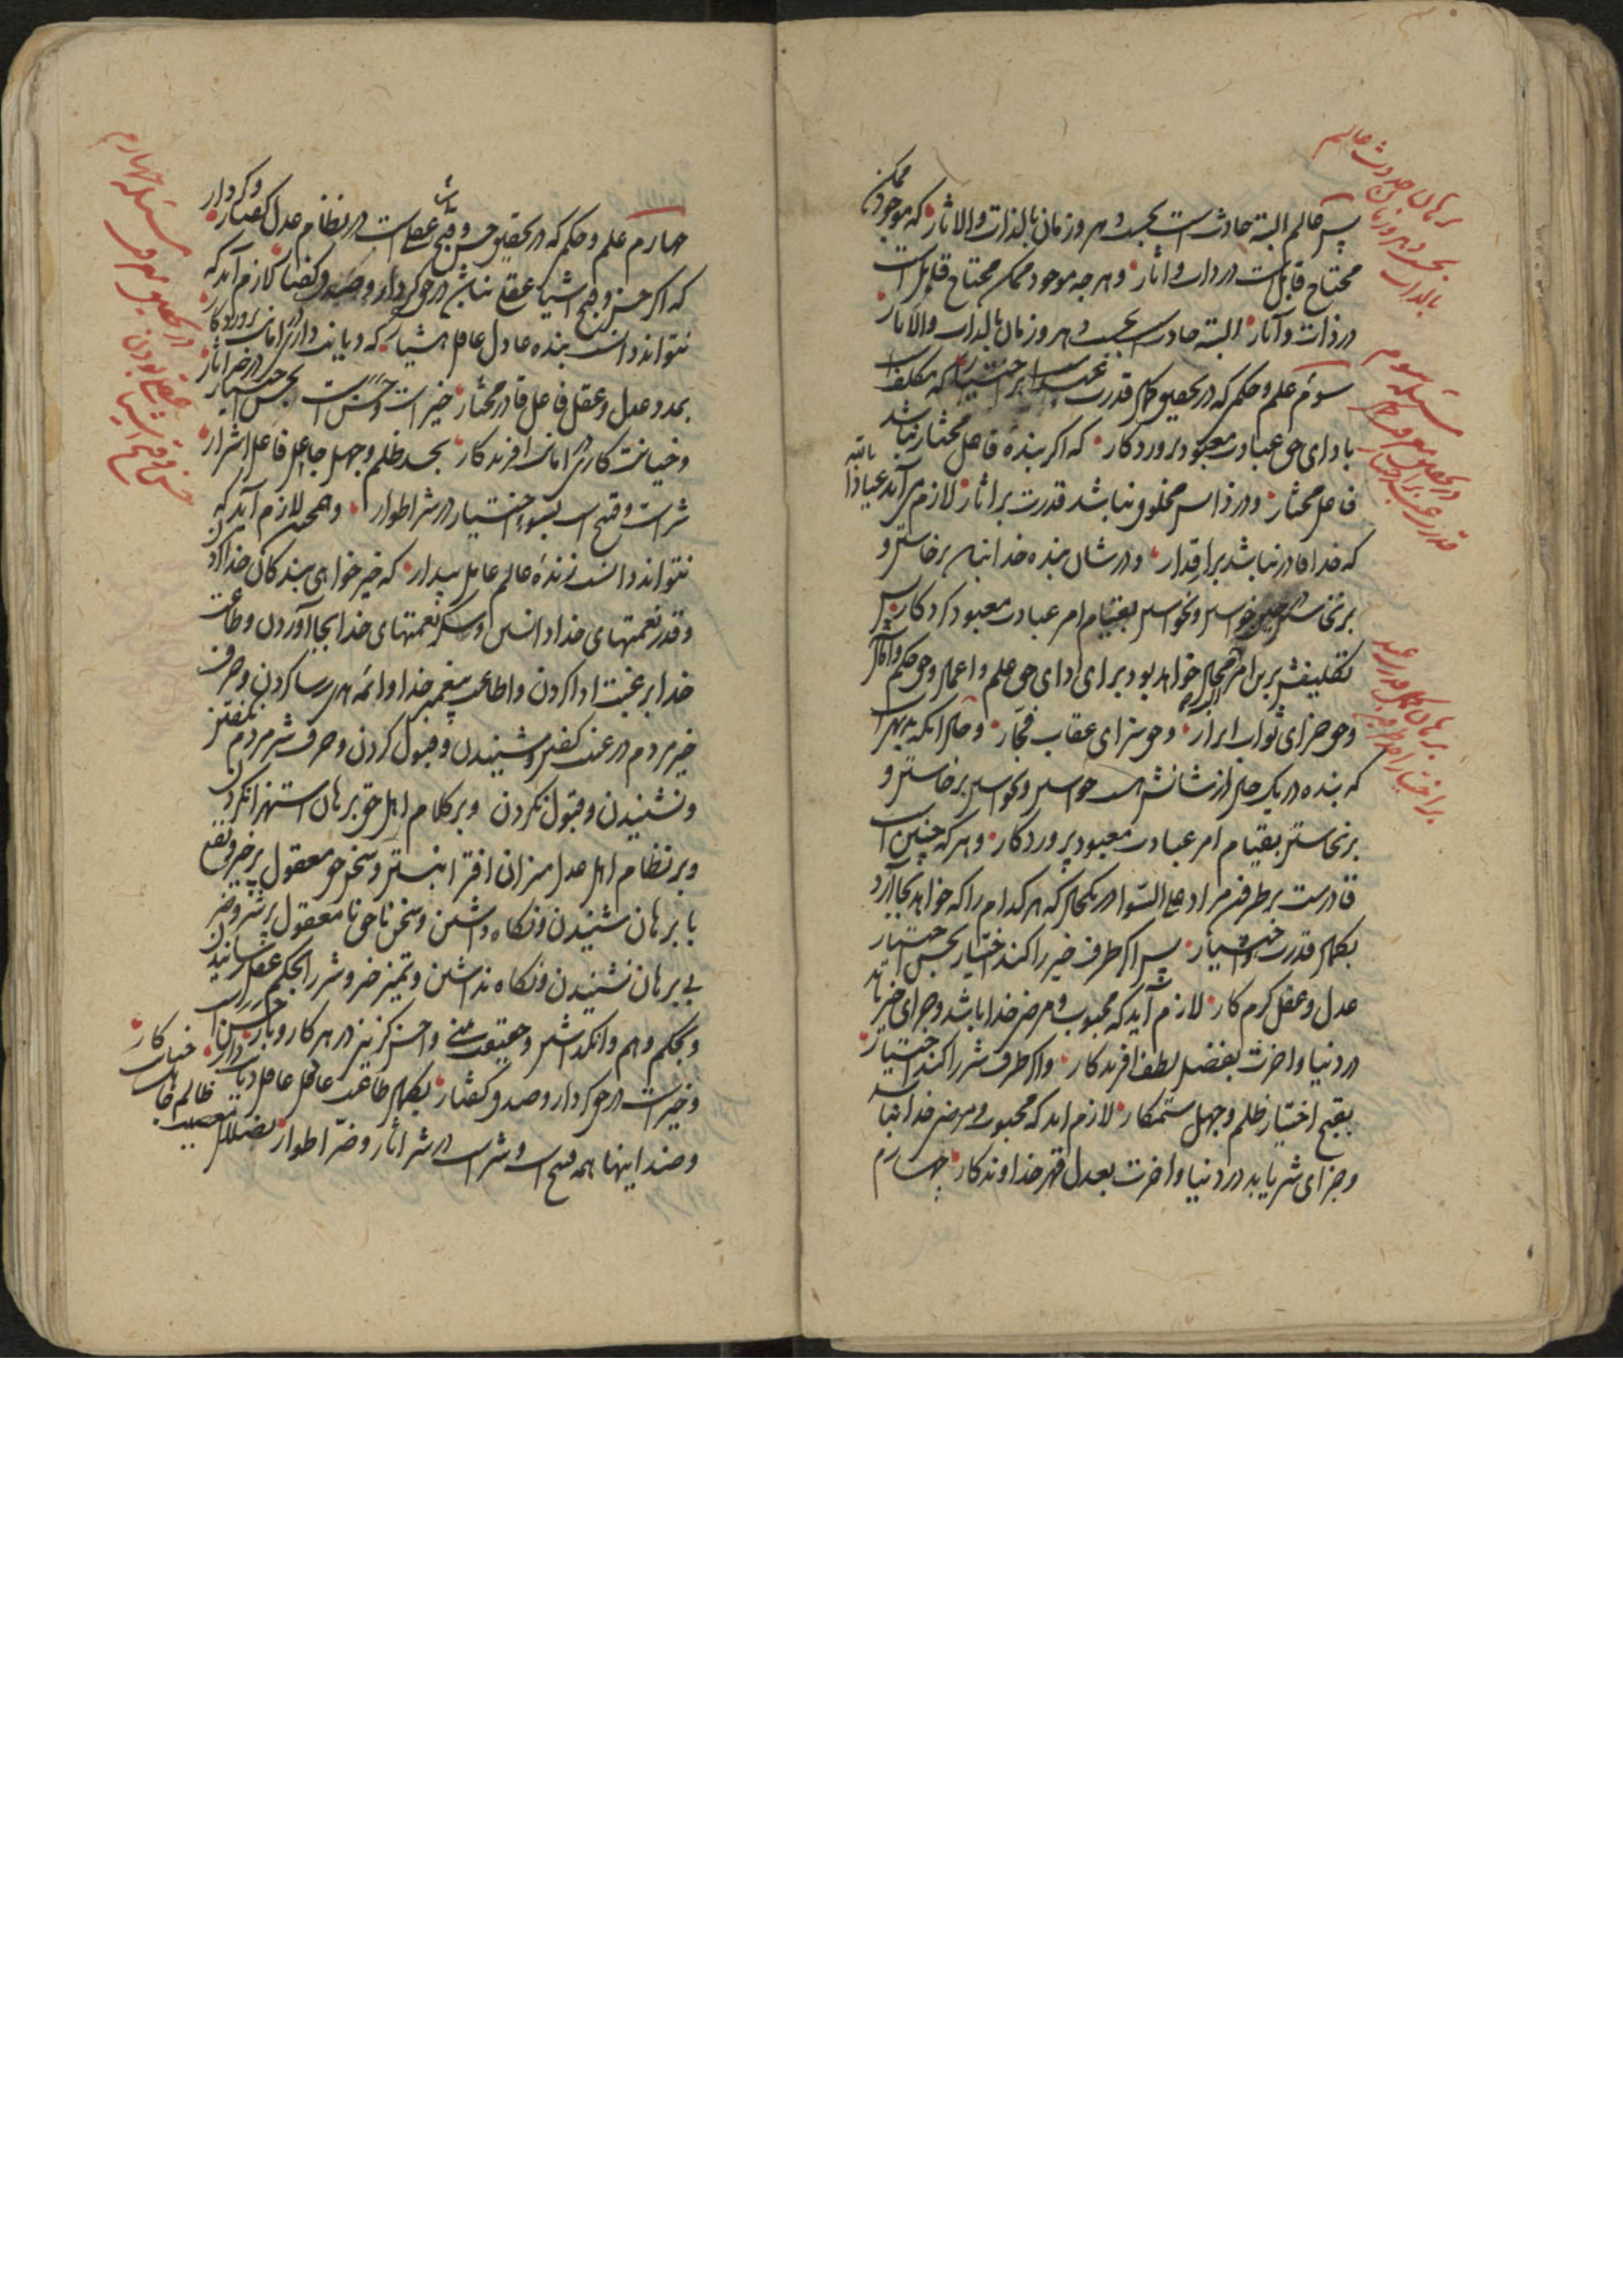 پس عالم البته حادث است بحسب دهر و زمان بالذات و الاثار که موجود ممکن
محتاج قابل است در ذات و اثار و هرچه موجود ممکن محتاج قابل است
در ذات و آثار البته حادث بحسب دهر و زمان بالذات والاثار
سوم علم و حکم که در تحقیق کمال قدرت عبد است بر اختیار که مکلف است
با دای حق عبادت معبود پروردکار که اکر بنده فاعل مختار نباشد
فاعل مختار و در ذاتش مخلوق نباشد قدرت بر اثار لازم می آید عیاذا بالله
که خدا قادر نباشد بر اقدار و در شان بنده خدا برخاستن و
برنخاستن خواستن و نخواستن بقیام امر عبادت معبود کردکار پس
تکلیفش برین امر محال خواهد بود برای ادای حق علم و اعمال و حق حکم و اثار
و حق جزای ثواب ابرار و حق سزای عقاب فجّار و حال آنکه
که بنده در یک حال از شانش هست خواستن و نخواستن برخاستن و
برنخاستن بقیام امر عبادت معبود پروردکار و هر که چنین است
قادرست بر طرفین مراد علی السّوا در یکحال که هر کدام را که خواهد بجا آرد
بکمال قدرت اختیار پس اکر طرف خیر را کند اختیار بحسن اختیار
عدل و عقل کرم کار لازم آید که محبوب و مرضی خدا باشد و جزای خیر یابد
در دنیا و اخرت بفضل لطف افریدکار و اکر طرف شر را کند اختیار
بقبح اختیار ظلم و جهل ستمکار لازم اید که محبوب و مرضی خدا نباشد
و جزای شر یابد در دنیا و اخرت بعدل قهر خداوندکار چهارم
برهان حدوث عالم
بحسب دهر و زمان
بالذات
مسئله سوم
در تحقیق
قدرت عبد بر اختیار
برهان کمال قدرت عبد
بر اختیار
چهارم علم و حکم که در تحقیق حسن و قبح اشیاء عقلی است در نظام عدل کفتار و کردار
که اکر حسن و قبح اشیا عقلی نباشد در حق کردار و صدق کفتار لازم آید که
نتواند دانست بنده عادل عاقل هشیار که دیانت داری در امانت پروردکار
بمدد عدل و عقل فاعل قادر مختار خیر است و حسن است بحسن اختیار در خیر اثار
و خیانت کاری در امانت افریدکار بحسد ظلم و جهل جاهل فاعل اشرار
شر است و قبیح است بسوء اختیار در شر اطوار و همچنین لازم آید که
نتواند دانست زندهٔ عالم عامل بیدار که خیر خواهی بندکان خدا کردن
و قدر نعمتهای خدا دانستن و شکر نعمتهای خدا بجا آوردن و طاعت
خدا برغبت ادا کردن و اطاعت پیغمبر خدا و ائمه هدی رسا کردن و حرف
خیر مردم در عقب کفتن و شنیدن و قبول کردن و حرف شر مردم نکفتن
و نشنیدن و قبول نکردن و بر کلام اهل حق برهان استهزا نکردن
و بر نظام اهل عدل میزان افترا نبستن و سخن حق معقول پر خیر و نفع
با برهان شنیدن و نکاه داشتن و سخن ناحق نامعقول پر شر و ضرر
بی برهان نشنیدن و نکاه نداشتن و تمیز خیر و شر را بحکم عقل رسانیدن
و بحکم وهم وانکذاشتن و حقیقت بینی و احسن کزینی در هر کار و بار حسن است
و خیر است در حق کردار و صدق کفتار بکمال طاعت عاقل عامل دیانت دار
و ضد اینها همه قبیح است و شر است در شر اثار و ضرّ اطوار بضلال معصیت ظالم خیانت کار
مسئله چهارم
در تحقیق
عقلی بودن
حسن و قبح اشیا